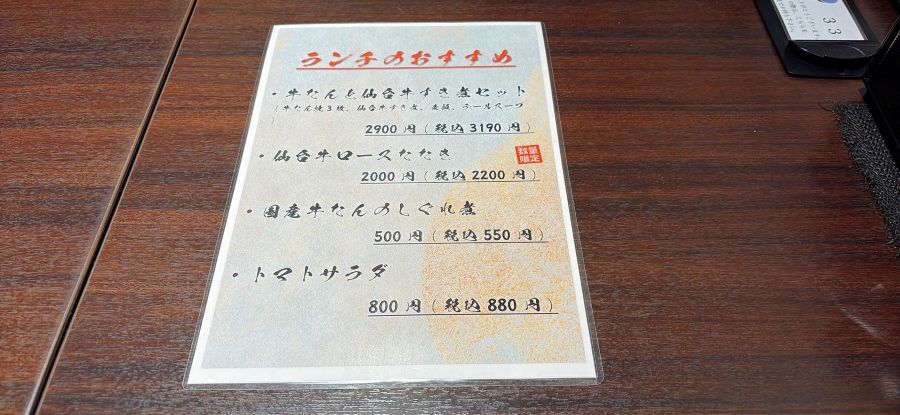 ランチのおすすめ
・牛たんと仙台牛すき煮セット
(牛たん焼3枚、仙台牛すき煮、麦飯、テールスープ
)
2900円(税込3190円)
・仙台牛ロースたたき
数量
限定
2000円(税込2200円)
・国産牛たんのしぐれ煮
500円(税込550円)
・トマトサラダ
800円(税込880円)
33